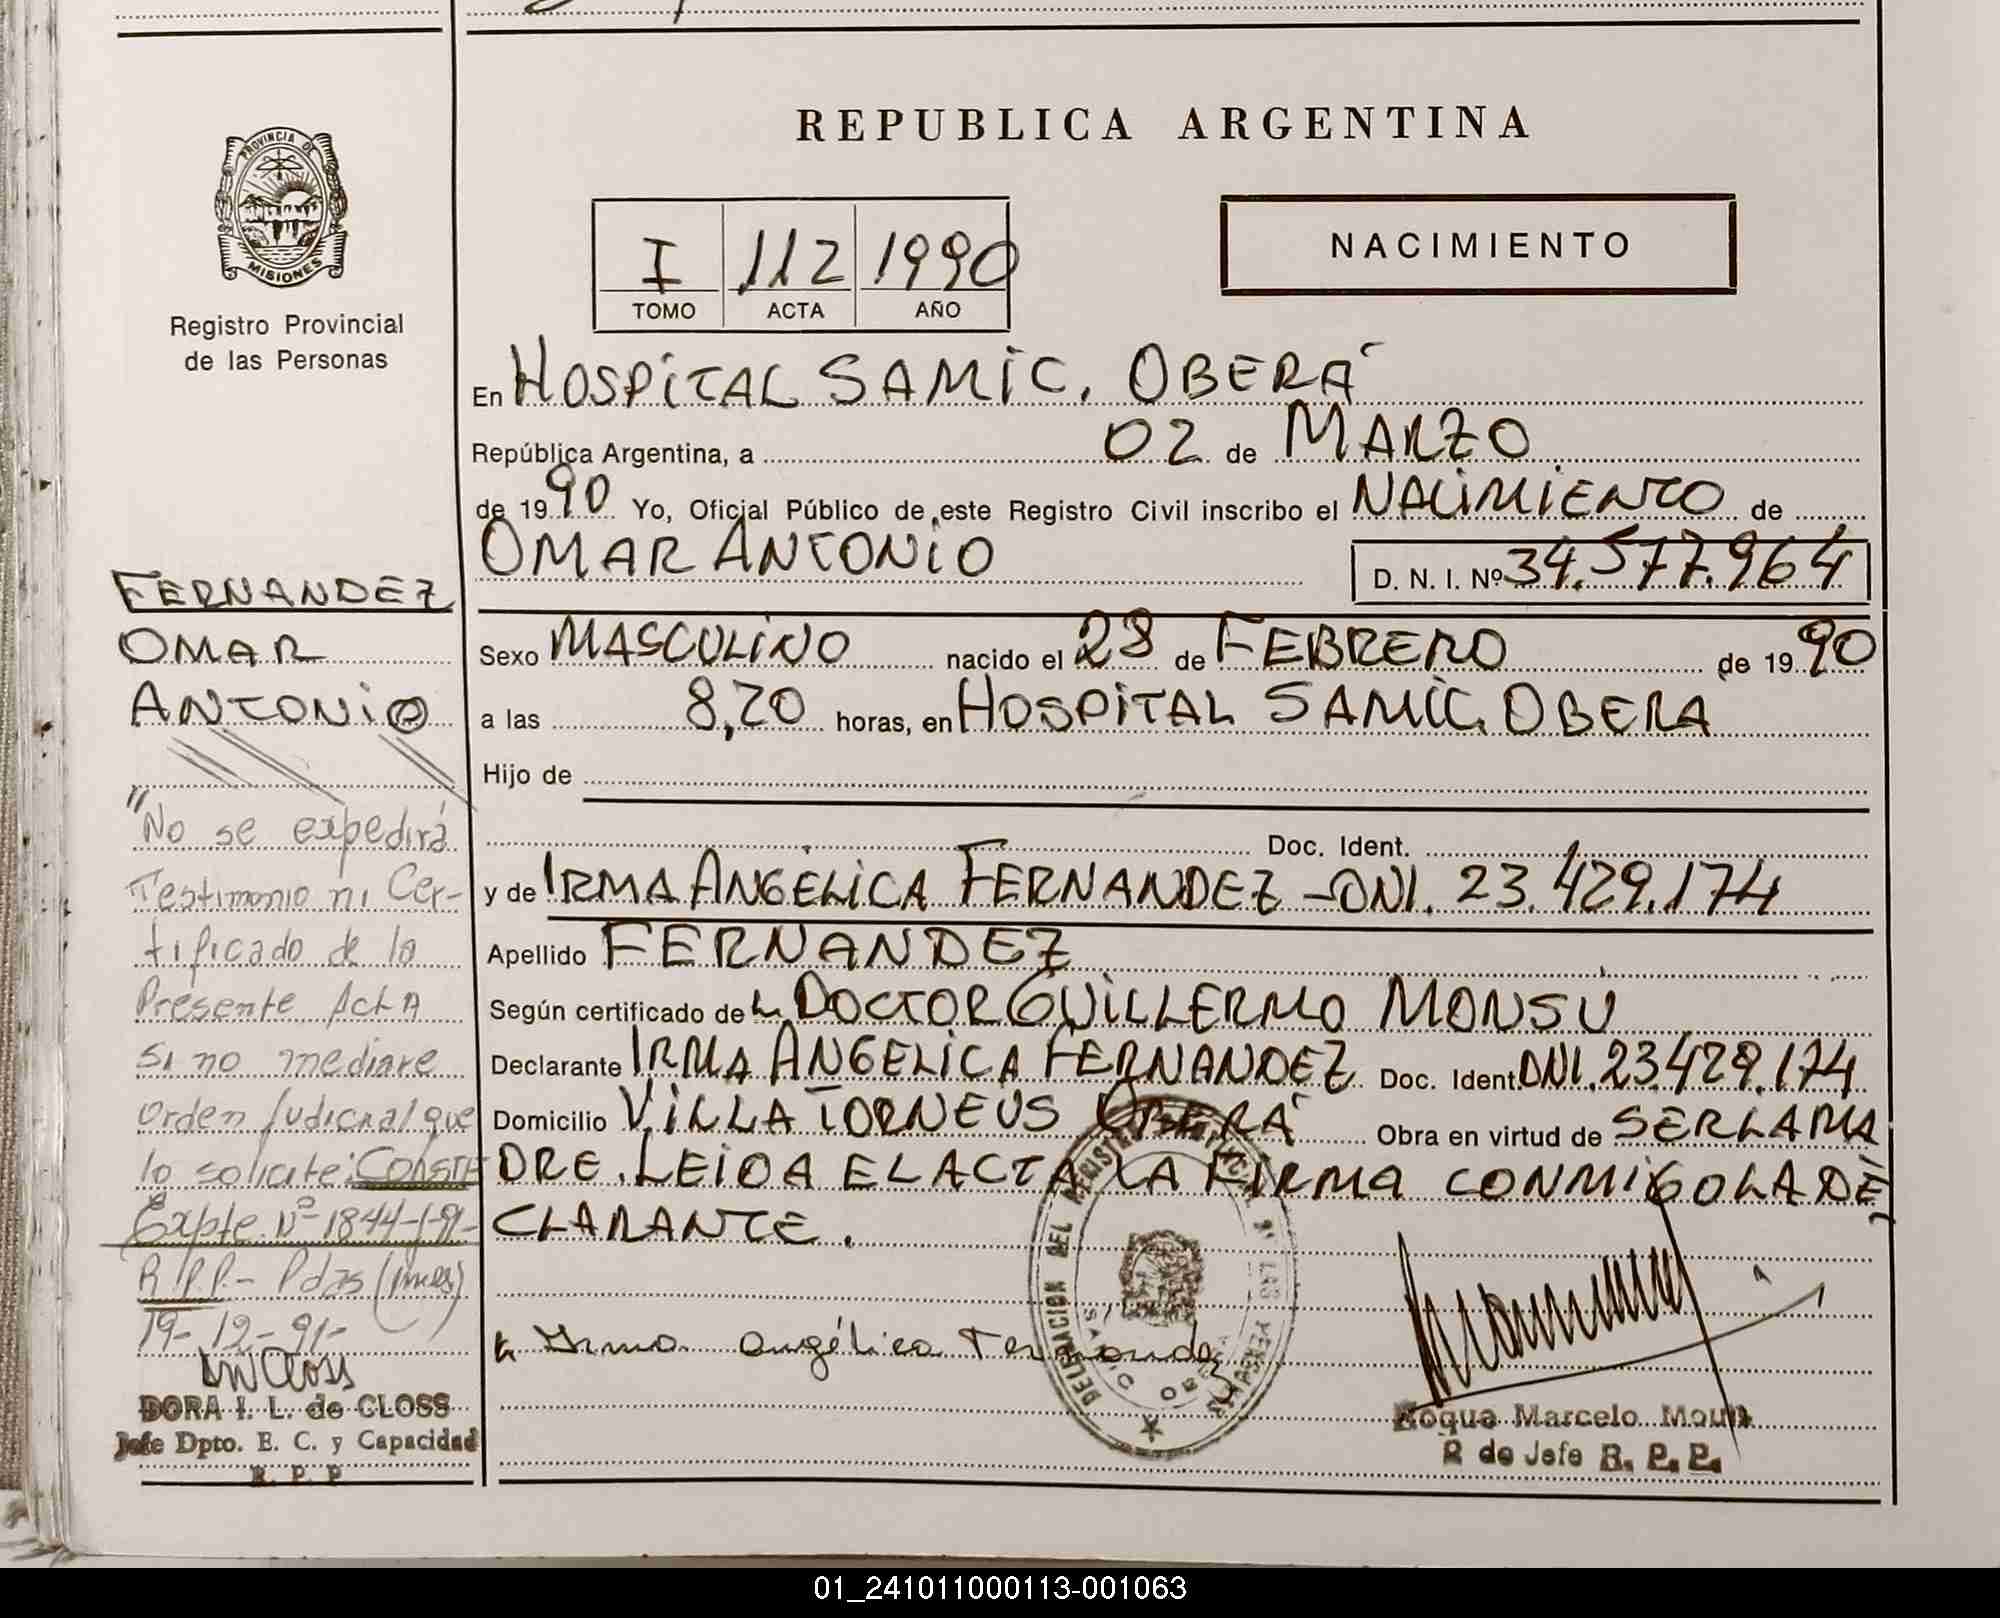 REPUBLICA ARGENTINA
PROVINCIA DE
MISIONES
Registro Provincial
de las Personas
NACIMIENTO
I 112 1990
TOMO ACTA AÑO
En HOSPITAL SAMIC. OBERÁ
República Argentina, a 02 de MARZO
de 1990 Yo, Oficial Público de este Registro Civil inscribo el NACIMIENTO de
OMAR ANTONIO D. N. I. Nº 34.577.964
Sexo MASCULINO nacido el 28 de FEBRERO de 1990
a las 8,20 horas, en HOSPITAL SAMIC. OBERA
Hijo de
Doc. Ident.
y de IRMA ANGELICA FERNANDEZ - DNI. 23.429.174
Apellido FERNANDEZ
Según certificado de DOCTOR GUILLERMO MONSU
Declarante IRMA ANGELICA FERNANDEZ Doc. Ident. DNI. 23.429.174
Domicilio VILLA TORNEUS OBERÁ Obra en virtud de SER LA MA
DRE. LEIDA EL ACTA LA FIRMA CONMIGO LA DE
CLARANTE.
Irma Angélica Fernandez
DELEGACION DEL REGISTRO
Roque Marcelo
2 de Jefe R. P. P.
FERNANDEZ
OMAR
ANTONIO
"No se expedirá
Testimonio ni Cer-
tificado de la
Presente Acta
si no mediare
Orden Judicial que
lo solicite: CONSTE
Expte. Nº 1844-I-91-
R.P.P.- Pdas
19-12-91-
DORA I. L. de CLOSS
Jefe Dpto. E. C. y Capacidad
R. P. P
01_241011000113-001063